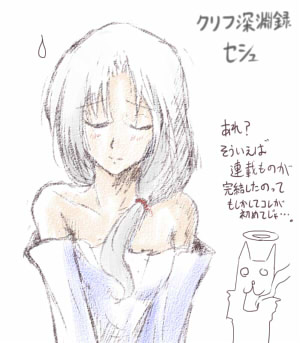 クリフ深淵録
セシュ
あれ?
そういえば
連載ものが
完結したのって
もしかしてコレが
初めてじゃ…。